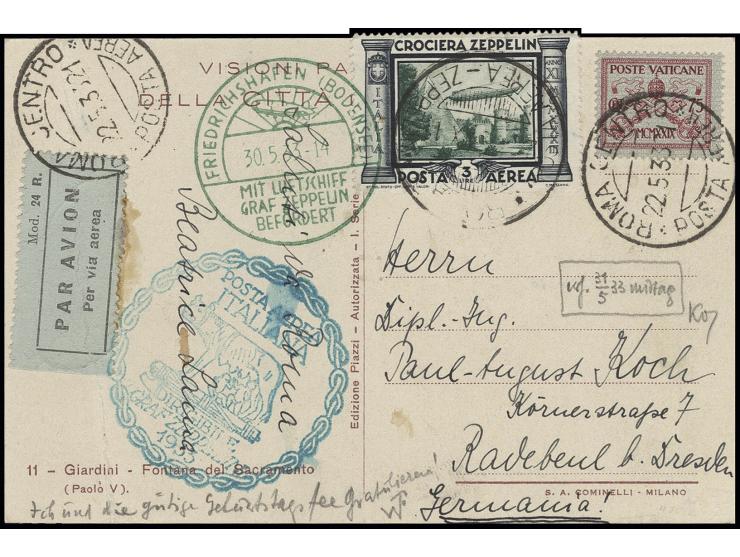 VISIONI PA
DELLA CITTÀ
ROMA CENTRO
POSTA AEREA
22.5.33.21
Mod. 24 R.
PAR AVION
Per via aerea
FRIEDRICHSHAFEN (BODENSEE)
30.5.
MIT LUFTSCHIFF
GRAF ZEPPELIN
BEFÖRDERT
CROCIERA ZEPPELIN
ITALIA
ANNO XI
3
LIRE
POSTA AEREA
POSTE VATICANE
MCMXXIX
ROMA CENTRO
22.5.33
POSTA
da Roma
Beatrice
POSTA AEREA
ITALIANA
DIRIGIBILE
GRAF ZEPPELIN
Edizione Piazzi - Autorizzata - I. Serie
Herrn
Dipl.-Ing.
Paul-August Koch
Körnerstraße 7
Radebeul b. Dresden
Germania!
31/5 33 mittag
11 – Giardini - Fontana del Sacramento
(Paolo V).
Ich und die gütige Geburtstagsfee gratulieren!
S. A. COMINELLI - MILANO